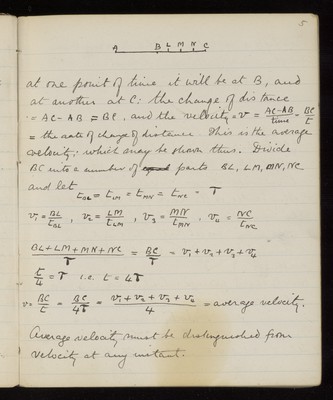 5
A B L M N C
at one point of time it will be at B, and
at another at C: the change of distance
= AC - AB = BC, and the velocity = v = AC-AB/time = BC/t
= the rate of change of distance. This is the average
velocity; which may be shown thus. Divide
BC into a number of parts BL, LM, MN, NC
and let t_BL = t_LM = t_MN = t_NC = T
v₁ = BL/t_BL, v₂ = LM/t_LM, v₃ = MN/t_MN, v₄ = NC/t_NC
BL+LM+MN+NC/T = BC/T = v₁+v₂+v₃+v₄
t/4 = T i.e. t = 4T
v = BC/t = BC/4T = v₁+v₂+v₃+v₄/4 = average velocity.
Average velocity must be distinguished from
velocity at any instant.